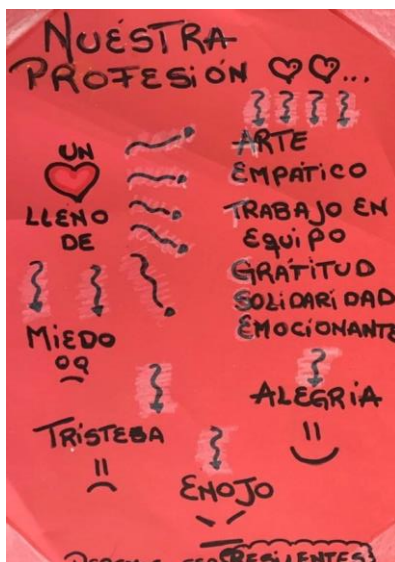 NUÉSTRA
PROFESIÓN ♡♡...
UN
♥
LLENO
DE
ARTE
EMPÁTICO
TRABAJO EN
EQUIPO
GRATITUD
SOLIDARIDAD
EMOCIONANTE
MIEDO
ALEGRIA
TRISTESA
ENOJO
RESILIENTES